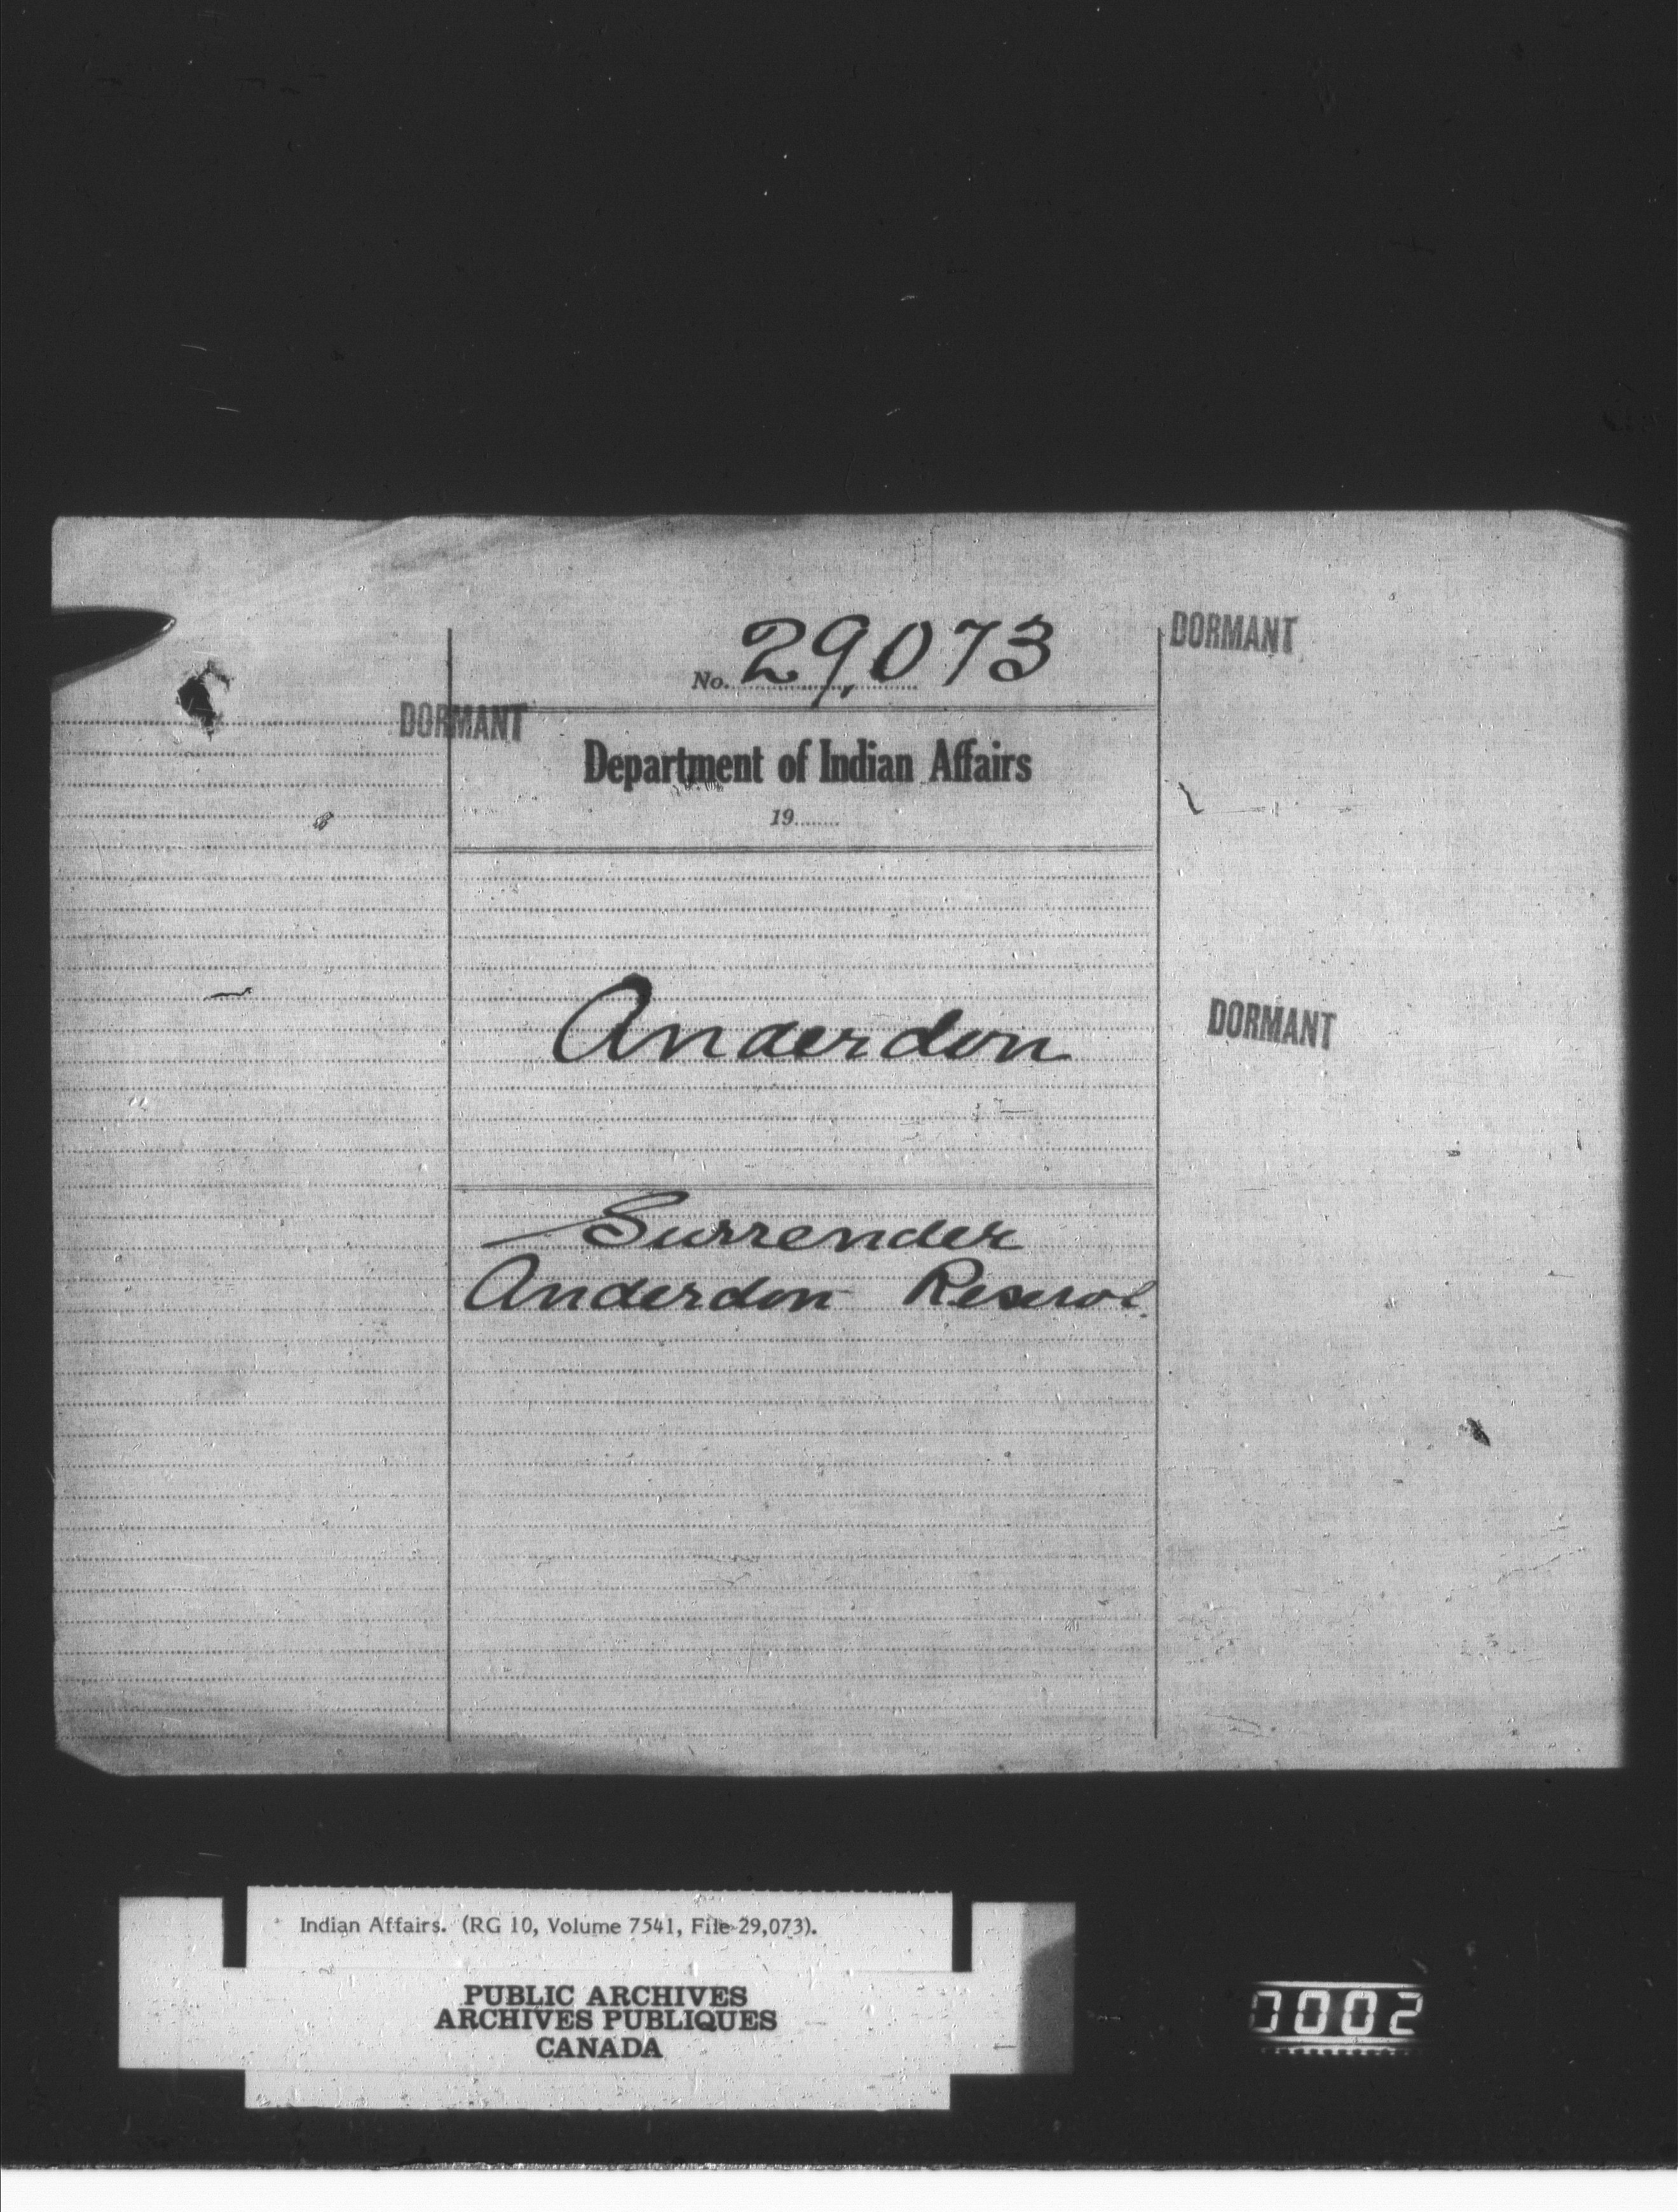 DORMANT
No. 29,073
DORMANT
Department of Indian Affairs
19........
Anderdon
DORMANT
Surrender
Anderdon Reserve
Indian Affairs. (RG 10, Volume 7541, File 29,073).
PUBLIC ARCHIVES
ARCHIVES PUBLIQUES
CANADA
0002